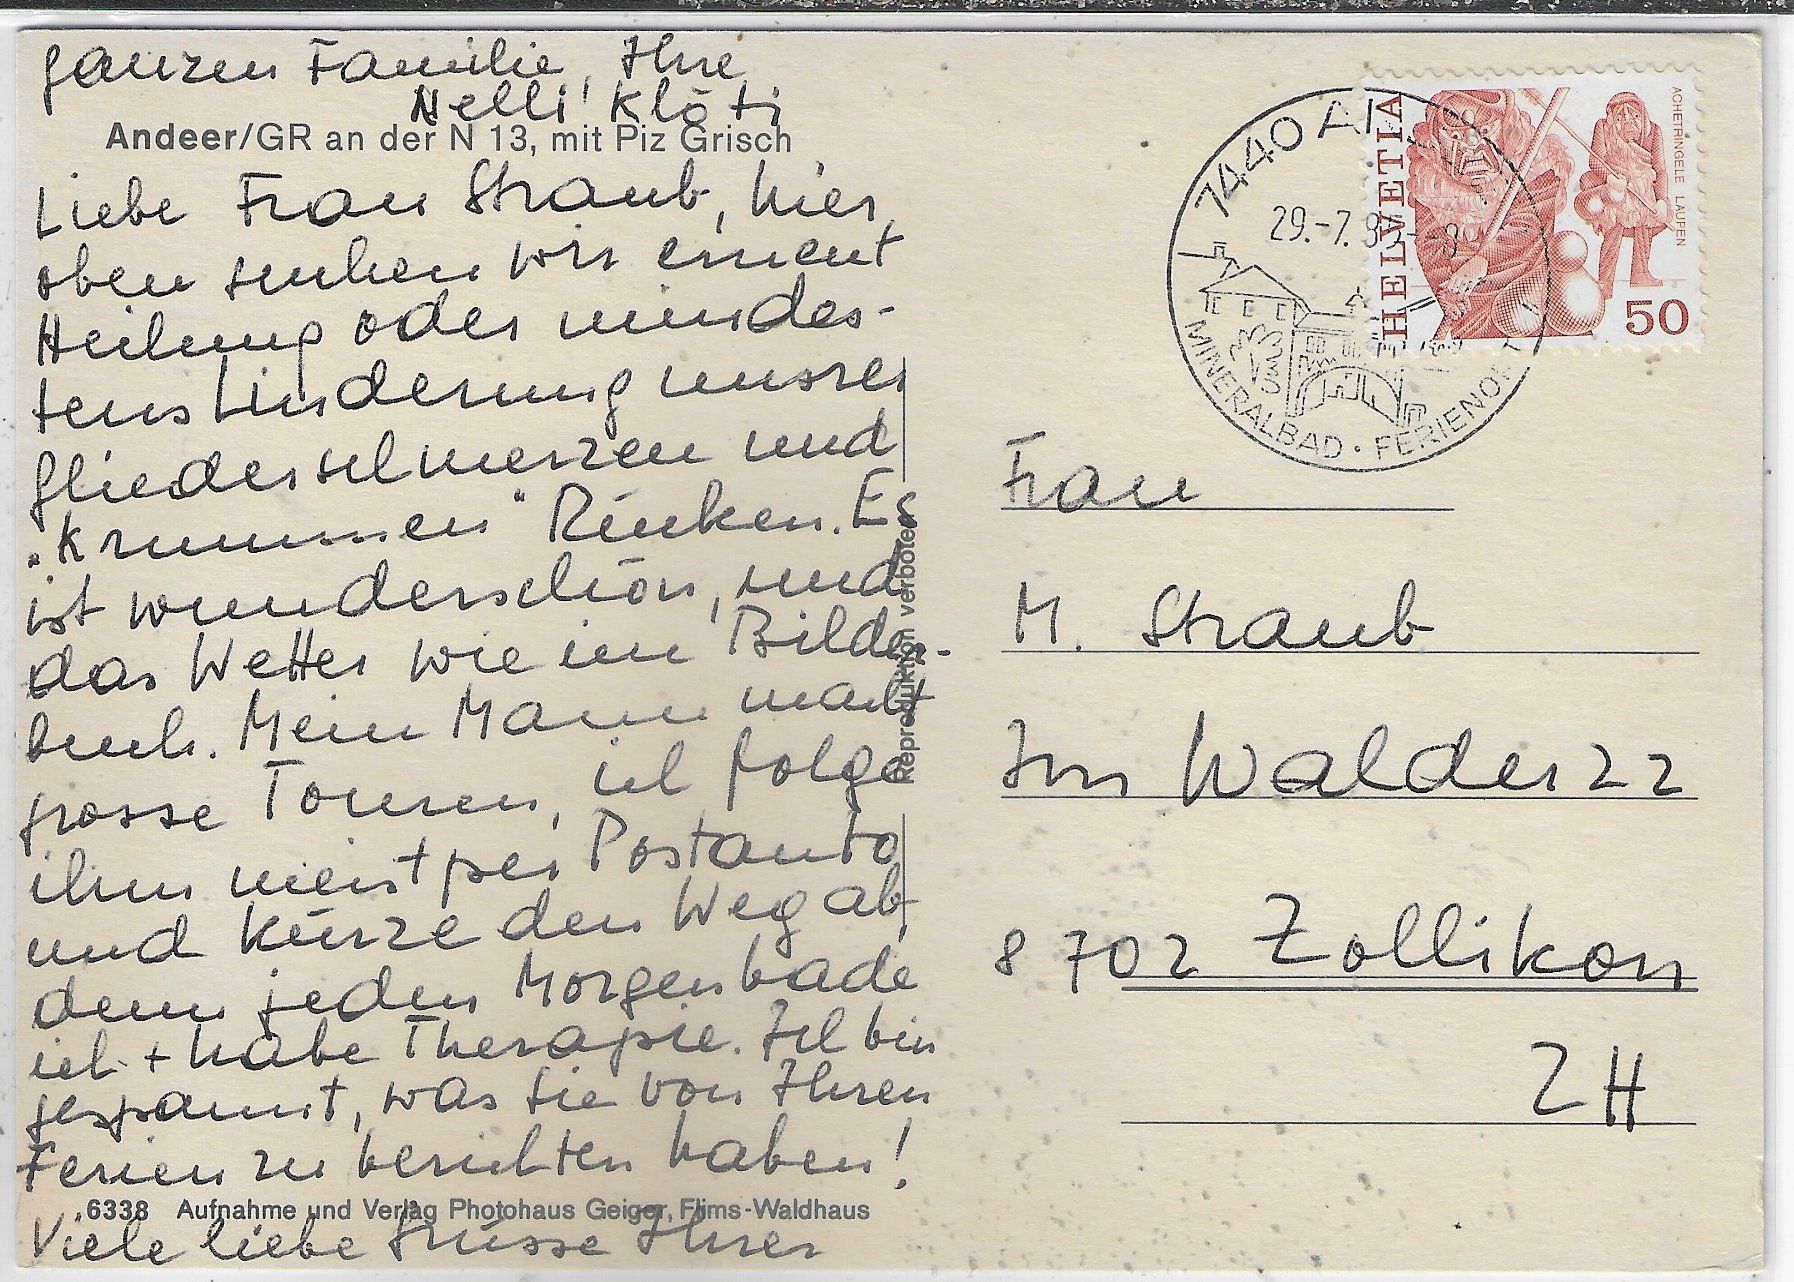 ganzen Familie, Ihre
Nelli Klöti
Andeer/GR an der N 13, mit Piz Grisch
Liebe Frau Straub, hier
oben suchen wir erneut
Heilung oder mindes-
tens Linderung unsrer
Gliederschmerzen und
"Krummen" Rücken. Es
ist wunderschön, und
das Wetter wie im Bilder-
buch. Mein Mann macht
grosse Touren, ich folge
ihm meist per Postauto
und kürze den Weg ab,
denn jeden Morgen bade
ich + habe Therapie. Ich bin
gespannt, was Sie von Ihren
Ferien zu berichten haben!
6338 Aufnahme und Verlag Photohaus Geiger, Flims-Waldhaus
Viele liebe Grüsse Ihrer
Reproduktion verboten
7440 AN
29.-7.8
MINERALBAD · FERIENORT
HELVETIA
ACHETRINGELE LAUPEN
50
Frau
M. Straub
Im Walder 22
8702 Zollikon
ZH